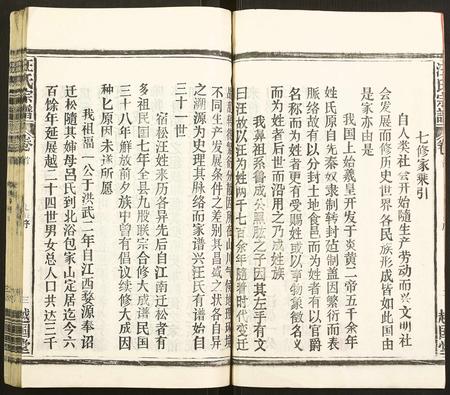 汪氏宗譜
卷
七修家乘引
自人類社會開始隨生產勞動而興文明社
會發展而修历史世界各民族形成皆如此国由
是家亦由是
我国上始羲皇开发于炎黄二帝五千余年
姓氏原自先秦奴隶制转封茆制盖因繁衍而表
脉络故有以分封土地食邑而为姓者有以官爵
名称而为姓者更有受赐姓或以事物象徵名义
而为姓者后世而沿用之乃成姓族
我鼻祖系鲁成公黑肱之子因其左手有文
曰汪故以汪为姓两千七百余年随着时代变迁
山川气候地理环境
不同生产发展条件之差别其昌盛之状各自异
之溯源为史理其脉络而家谱兴汪氏有谱始自
三十一世
宿松汪姓来历各异先后自江南迁松者有
多祖民国七年全县九股联宗合修大成谱民国
三十八年解放前夕族中曾有倡议续修大成因
种匕原因未遂所愿
我祖福一公于洪武二年自江西婺源奉诏
迁松随其姊母吕氏到北浴包家山定居迄今六
百馀年延展越二十四世男女总人口共达三千
汪氏宗譜
卷首
序
三
越国堂